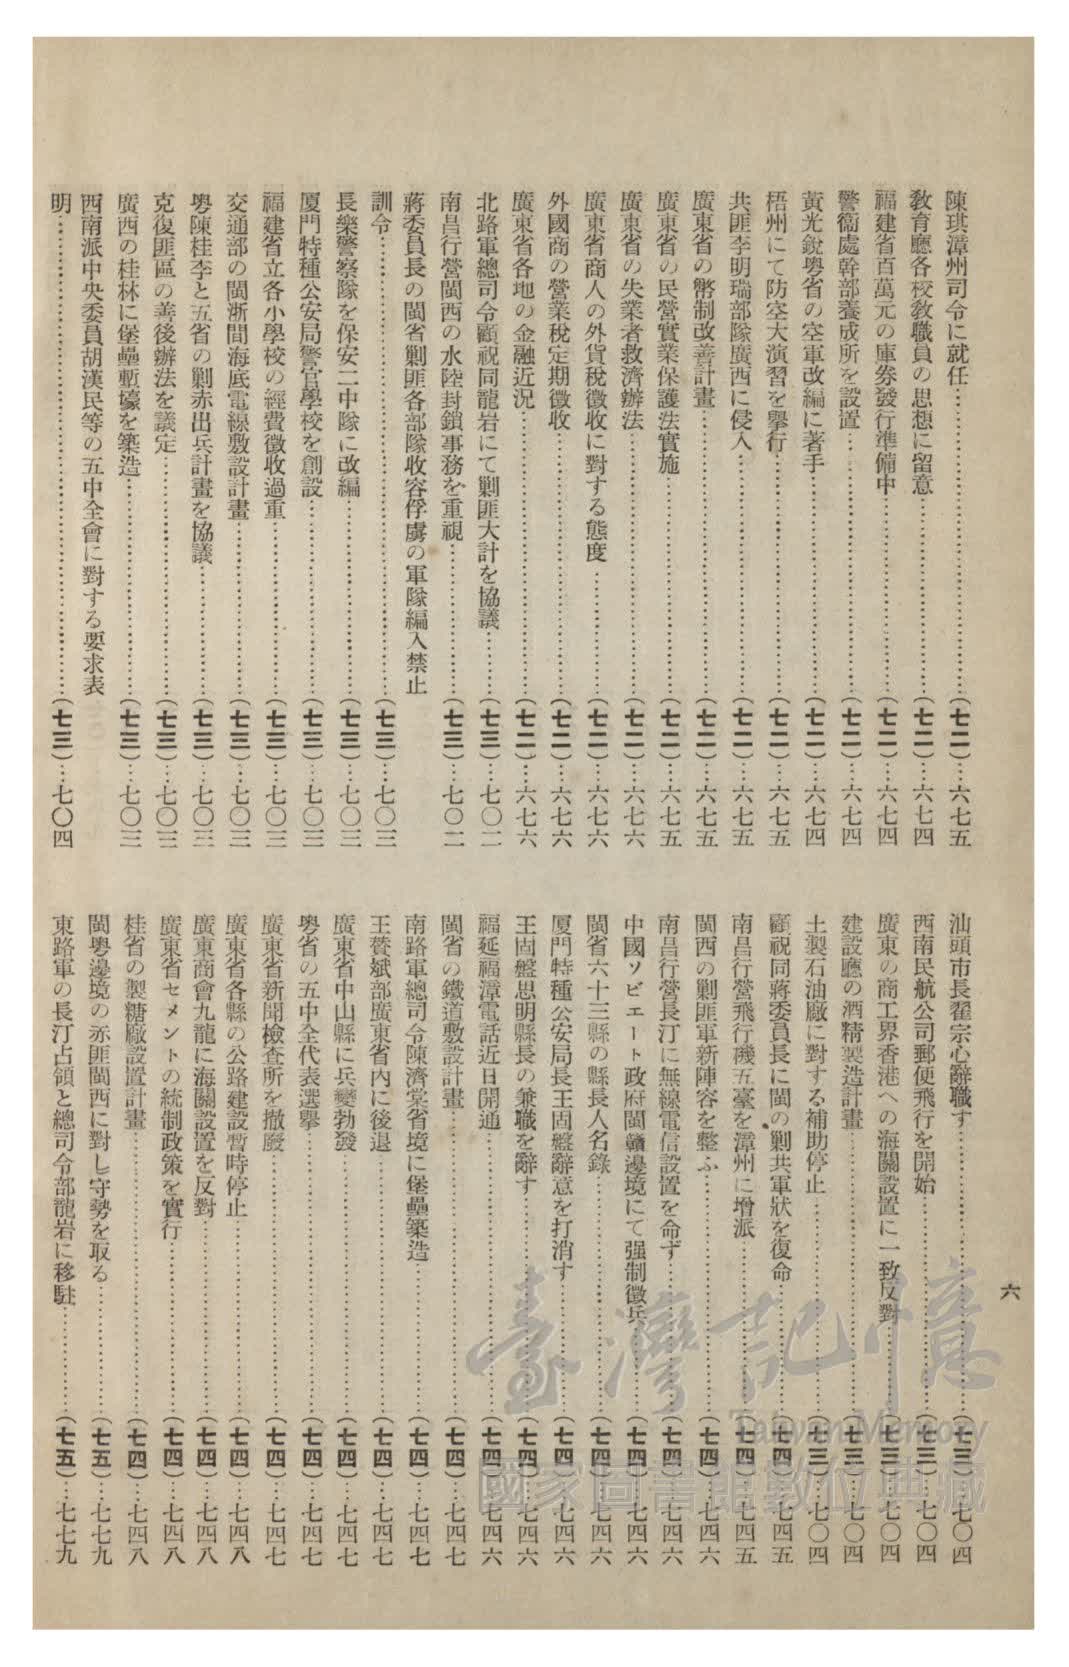 六
陳琪漳州司令に就任…………(七二)…六七五
教育廳各校教職員の思想に留意…………(七二)…六七四
福建省百萬元の庫券發行準備中…………(七二)…六七四
警衞處幹部養成所を設置…………(七二)…六七四
黃光銳粤省の空軍改編に著手…………(七二)…六七四
梧州にて防空大演習を擧行…………(七二)…六七五
共匪李明瑞部隊廣西に侵入…………(七二)…六七五
廣東省の幣制改善計畫…………(七二)…六七五
廣東省の民營實業保護法實施…………(七二)…六七五
廣東省の失業者救濟辦法…………(七二)…六七六
廣東省商人の外貨稅徵收に對する態度…………(七二)…六七六
外國商の營業稅定期徵收…………(七二)…六七六
廣東省各地の金融近況…………(七二)…六七六
北路軍總司令顧祝同龍岩にて剿匪大計を協議…………(七三)…七〇二
南昌行營閩西の水陸封鎖事務を重視…………(七三)…七〇二
蔣委員長の閩省剿匪各部隊收容俘虜の軍隊編入禁止
訓令…………(七三)…七〇三
長樂警察隊を保安二中隊に改編…………(七三)…七〇三
厦門特種公安局警官學校を創設…………(七三)…七〇三
福建省立各小學校の經費徵收過重…………(七三)…七〇三
交通部の閩浙間海底電線敷設計畫…………(七三)…七〇三
粤陳桂李と五省の剿赤出兵計畫を協議…………(七三)…七〇三
克復匪區の善後辦法を議定…………(七三)…七〇三
廣西の桂林に堡壘塹壕を築造…………(七三)…七〇三
西南派中央委員胡漢民等の五中全會に對する要求表
明…………(七三)…七〇四
汕頭市長翟宗心辭職す…………(七三)…七〇四
西南民航公司郵便飛行を開始…………(七三)…七〇四
廣東の商工界香港への海關設置に一致反對…………(七三)…七〇四
建設廳の酒精製造計畫…………(七三)…七〇四
土製石油廠に對する補助停止…………(七三)…七〇四
顧祝同蔣委員長に閩の剿共軍狀を復命…………(七四)…七四五
南昌行營飛行機五臺を漳州に增派…………(七四)…七四五
閩西の剿匪軍新陣容を整ふ…………(七四)…七四六
南昌行營長汀に無線電信設置を命ず…………(七四)…七四六
中國ソビエート政府閩贛邊境にて强制徵兵…………(七四)…七四六
閩省六十三縣の縣長人名錄…………(七四)…七四六
厦門特種公安局長王固盤辭意を打消す…………(七四)…七四六
王固盤思明縣長の兼職を辭す…………(七四)…七四六
福延福漳電話近日開通…………(七四)…七四六
閩省の鐵道敷設計畫…………(七四)…七四七
南路軍總司令陳濟棠省境に堡壘築造…………(七四)…七四七
王贊斌部廣東省內に後退…………(七四)…七四七
廣東省中山縣に兵變勃發…………(七四)…七四七
粤省の五中全代表選擧…………(七四)…七四七
廣東省新聞檢查所を撤廢…………(七四)…七四七
廣東省各縣の公路建設暫時停止…………(七四)…七四八
廣東商會九龍に海關設置を反對…………(七四)…七四八
廣東省セメントの統制政策を實行…………(七四)…七四八
桂省の製糖廠設置計畫…………(七四)…七四八
閩粤邊境の赤匪閩西に對し守勢を取る…………(七五)…七七九
東路軍の長汀占領と總司令部龍岩に移駐…………(七五)…七七九
臺灣記憶
Taiwan Memory
國家圖書館數位典藏